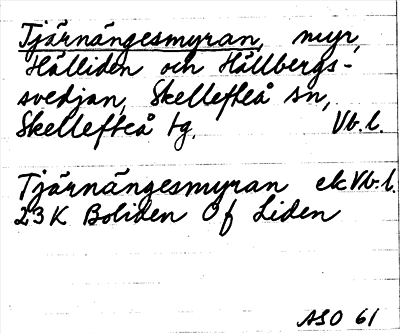 Tjärnängesmyran, myr,
Hälliden och Hällbergs-
svedjan, Skellefteå sn,
Skellefteå tg. Vb.l.
Tjärnängesmyran ek Vb.l.
23K Boliden 0f Liden
ASO 61